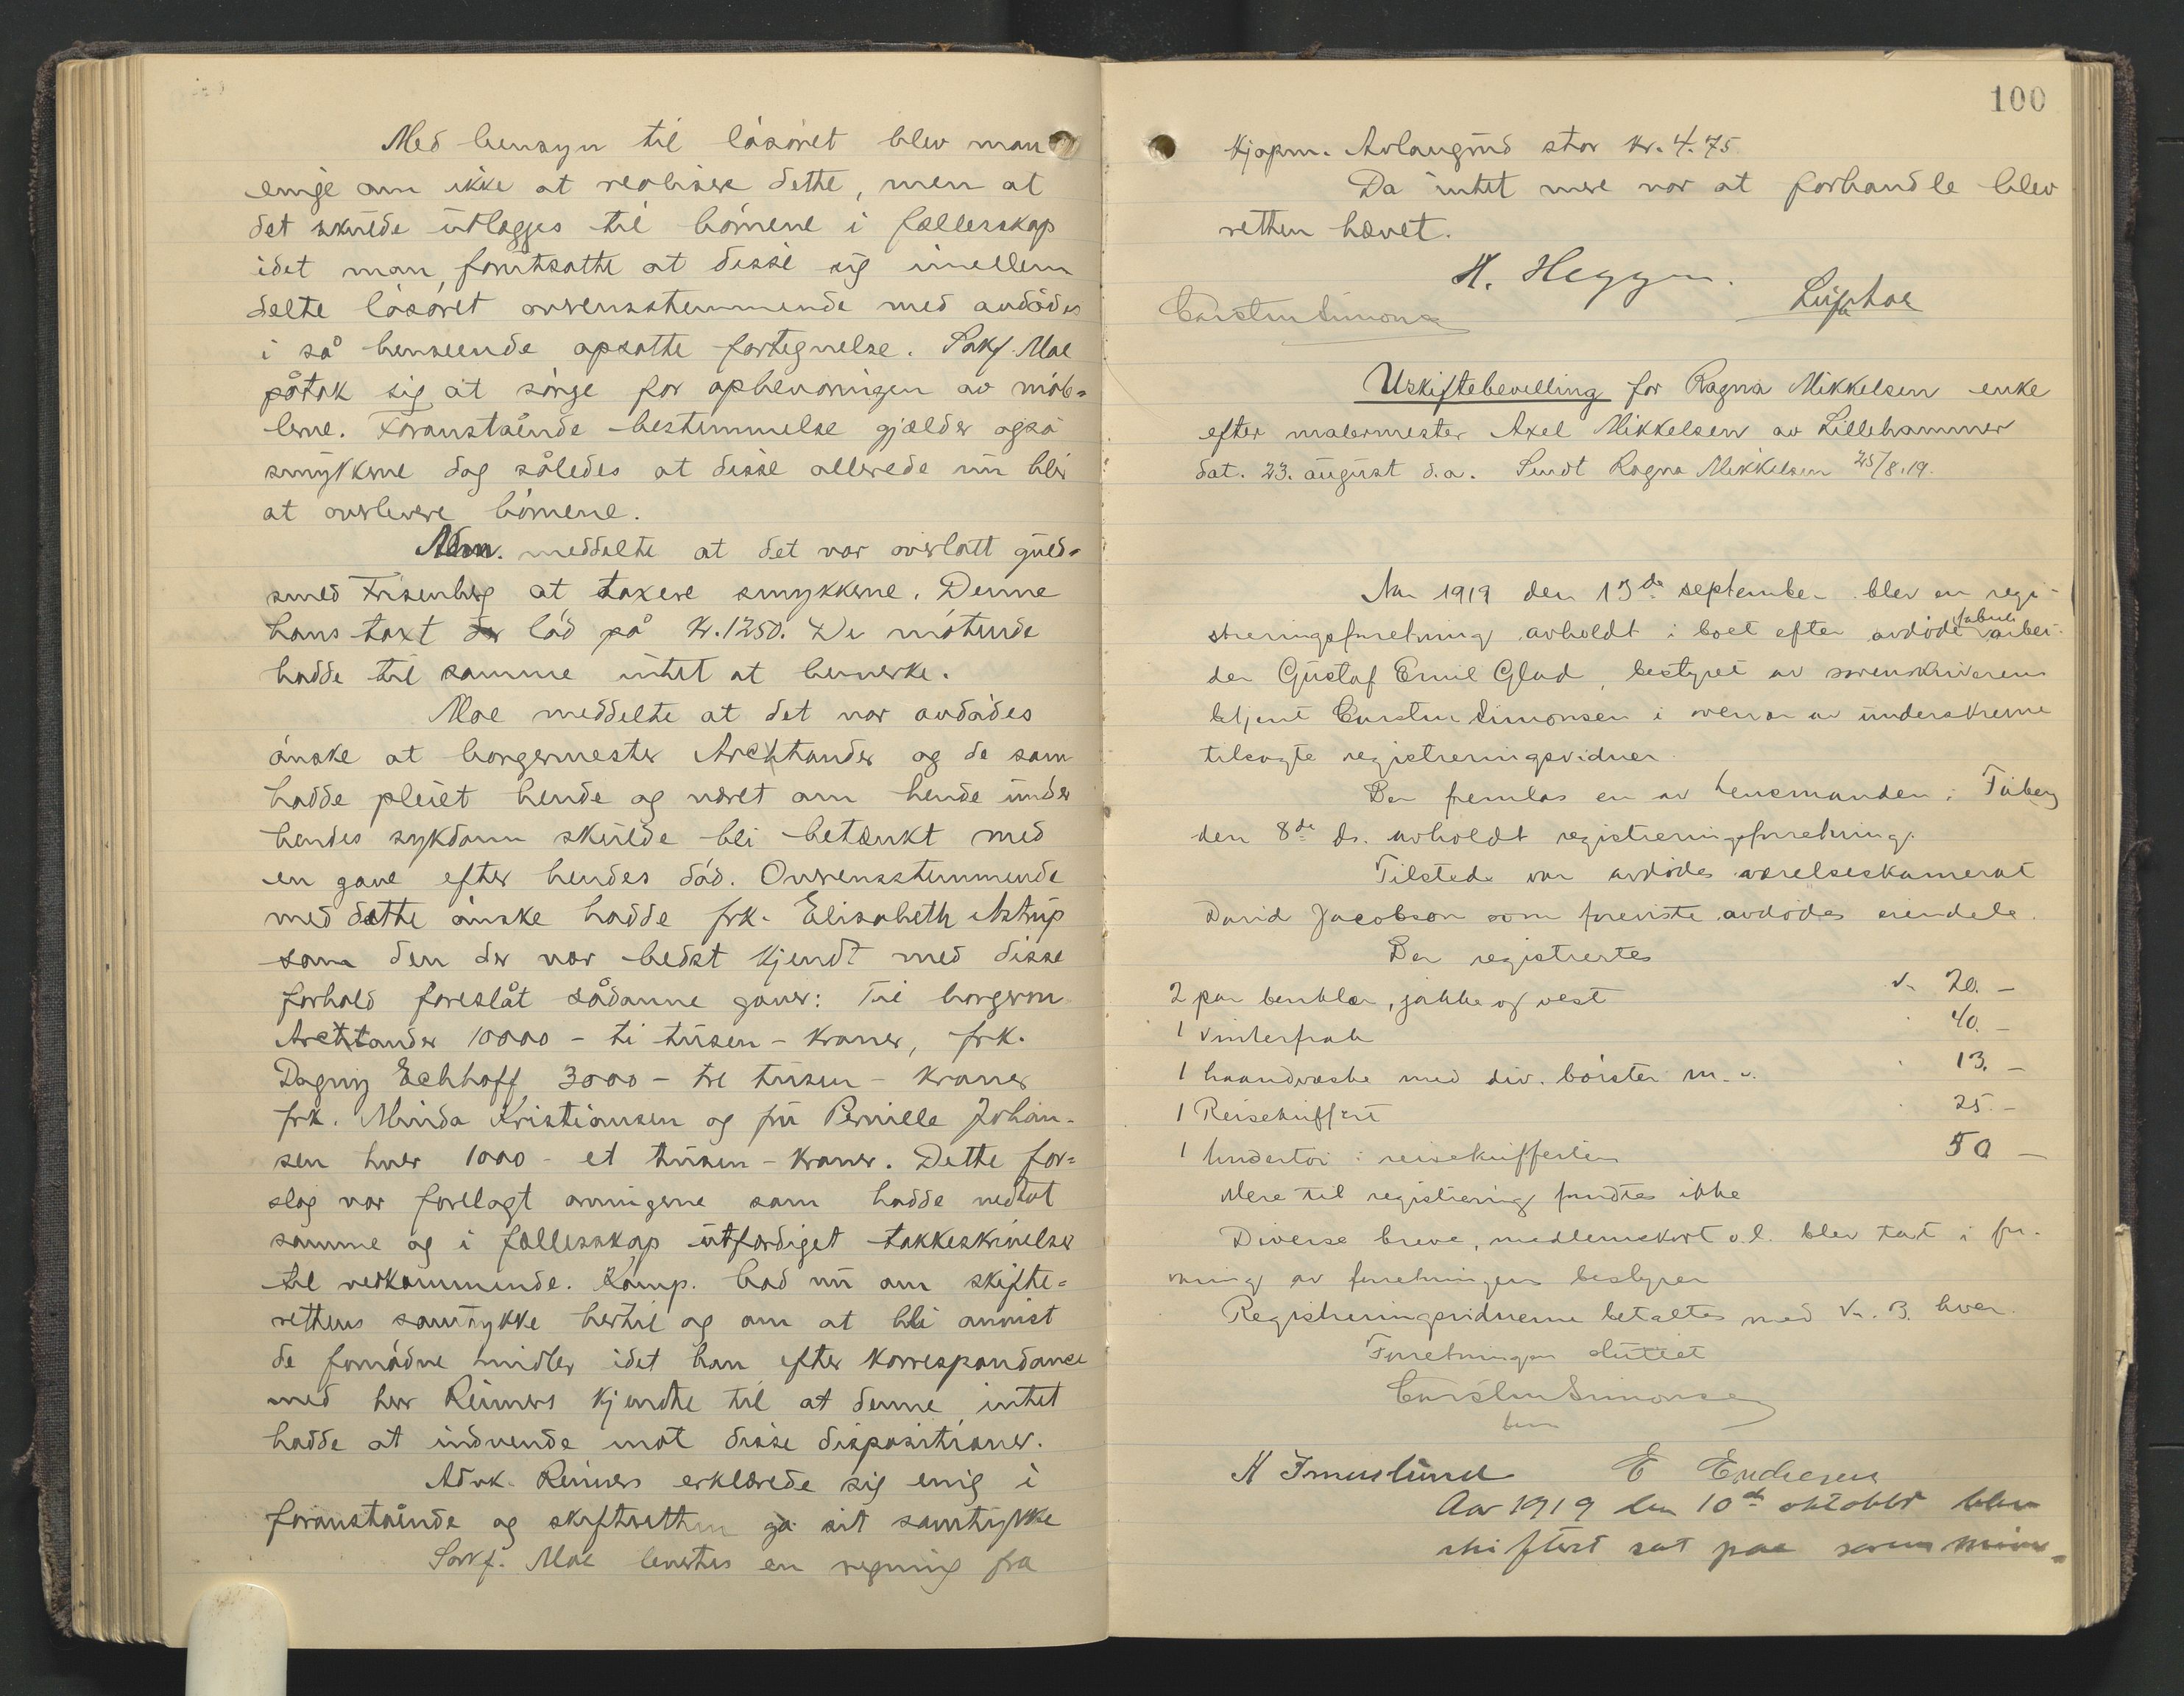 Med hensyn til løsøret blev man
enige om ikke at realisere dette, men at
det skulde utlægges til børnene i fællesskap
idet man forutsatte at disse sig imellem
delte løsøret overensstemmende med avdødes
i så henseende opsatte fortegnelse. Sakf. Moe
påtok sig at sørge for opbevaringen av møb=
lerne. Foranstående bestemmelse gjælder også
smykkerne dog således at disse allerede nu blir
at overlevere børnene.
Adm. meddelte at det var overlatt guld=
smed Frisenberg at taxere smykkerne. Denne
hans taxt lød på kr. 1250. De møtende
hadde til samme intet at bemerke.
Moe meddelte at det var avdødes
ønske at borgermester Arctander og de som
hadde pleiet hende og været om hende under
hendes sykdom skulde bli betænkt med
en gave efter hendes død. Overensstemmende
med dette ønske hadde frk. Elisabeth Astrup
som den der var bedst kjendt med disse
forhold foreslåt sådanne gaver: Til borgerm.
Arctander 10000 - ti tusen - kroner, frk.
Dagny Eckhoff 3000 - tre tusen - kroner
frk. Minda Kristiansen og fru Pernille Johan-
sen hver 1000 - et tusen - kroner. Dette for=
slag var forelagt arvingerne som hadde vedtat
samme og i fællesskap utfærdiget takkeskrivelser
til vedkommende. Komp. bad nu om skifte=
rettens samtykke hertil og om at bli anvist
de fornødne midler idet han efter korrespondance
med herr Reimers kjendte til at denne intet
hadde at indvende mot disse dispositioner.
Advk. Reimers erklærede sig enig i
foranstående og skifteretten ga sit samtykke
Sakf. Moe leverte en regning fra
100
Kjøpm. Avlangrud stor kr. 4.75
Da intet mere var at forhandle blev
retten hævet.
H. Heggen.
Carsten Simonsen
Uskiftebevilling for Ragna Mikkelsen enke
efter malermester Axel Mikkelsen av Lillehammer
dat. 23. august d.a. Sendt Ragna Mikkelsen 25/8.19.
Aar 1919 den 13de september blev en regi-
streringsforretning avholdt i boet efter avdøde fabrik arbei-
der Gustaf Emil Glad, bestyret av sorenskriverens
betjent Carsten Simonsen i overvær av underskrevne
tilsagte registreringsvidner
Der fremlas en av lensmanden i Faaberg
den 8de ds. avholdt registreringsforretning.
Tilstede var avdødes værelseskamerat
David Jacobson som foreviste avdødes eiendele.
Der registrertes
2 par benklær, jakke og vest kr 20. -
1 vinterfrak 40. -
1 haandvæske med div. børster m. v. 13. -
1 Reisekuffert 25. -
1 Undertøi i reisekufferten 50 -
Mere til registrering fandtes ikke
Diverse breve, medlemskort o.l. blev tat i for-
varing av forretningens bestyrer
Registreringsvidnerne betaltes med kr. 3. hver.
Forretningen sluttet
Carsten Simonsen
H Imuslund E Endresen
Aar 1919 den 10de oktober blev
skifteret sat paa